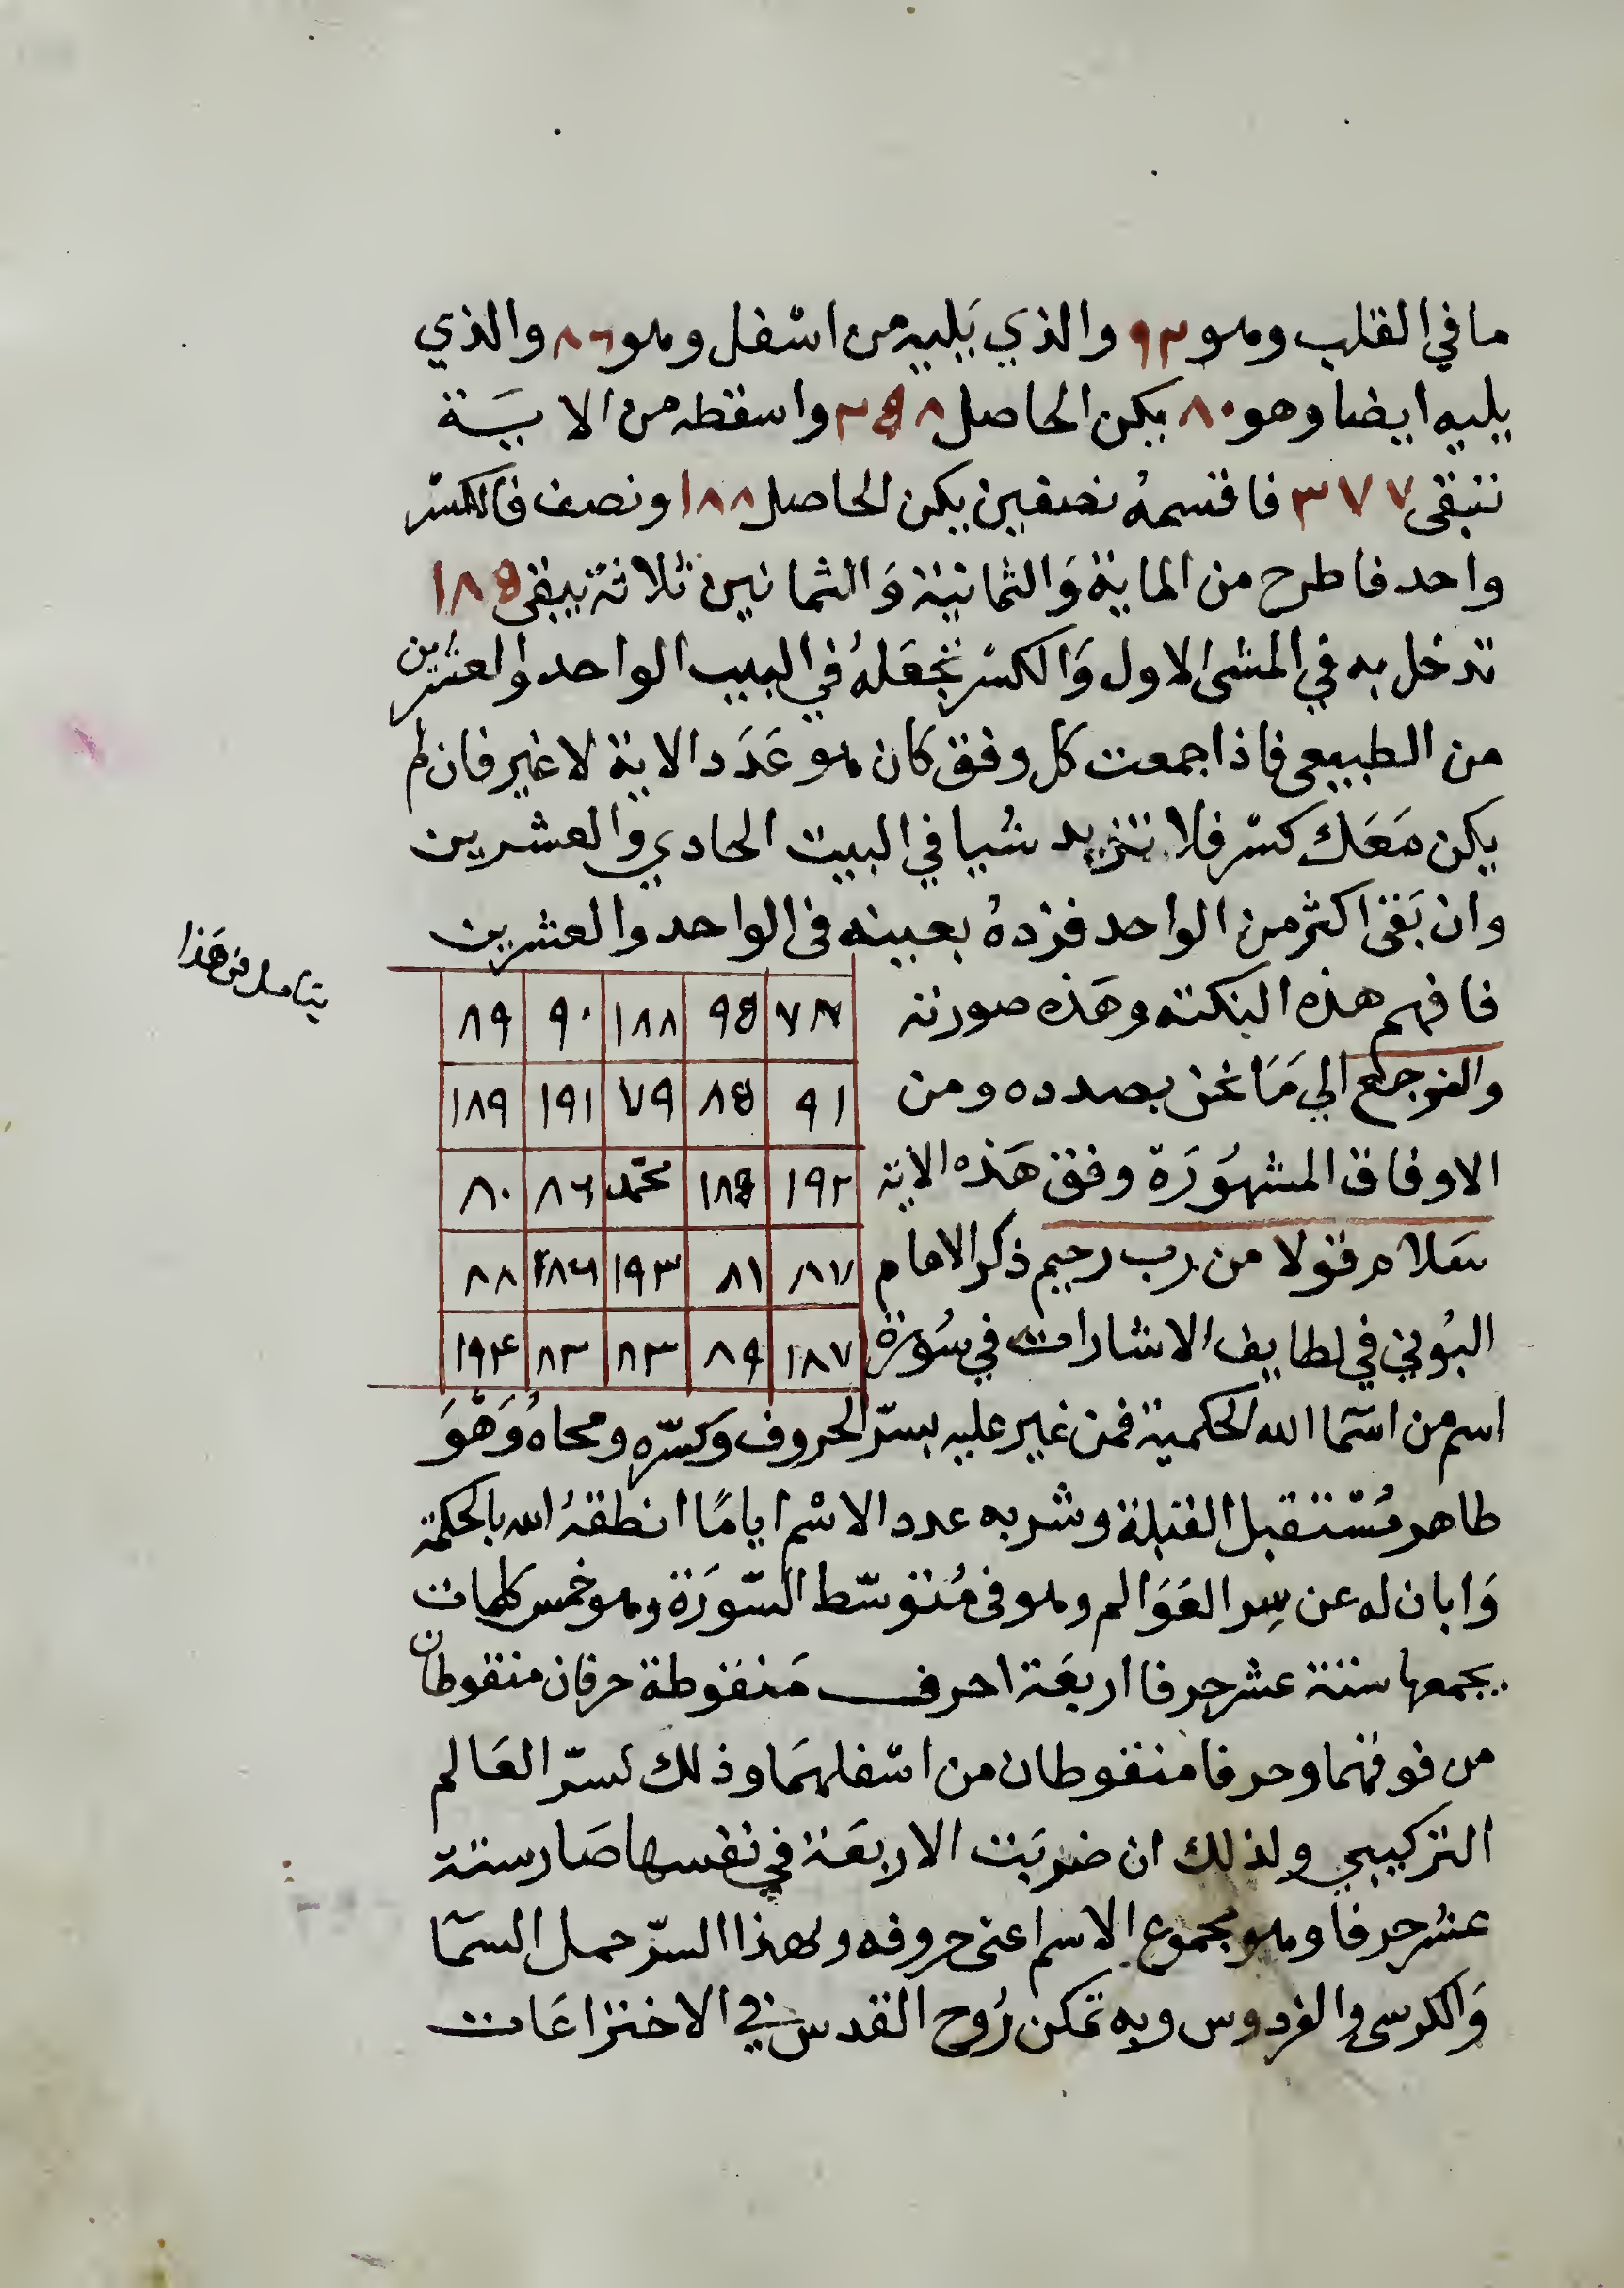 ما في القلب وهو ٩٢ والذي يَليه من اسْفل وهو ٨٦ والذي
يليه ايضا وهو ٨٠ يكن الحاصل ٢٥٨ واسقطه من الايَــة
تبقى ٣٧٧ فاقسمهُ نصفين يكن الحاصل ١٨٨ ونصف فالكسْر
واحد فاطرح من الماية وَالثمانية وَالثمانين ثلاثة يبقى ١٨٥
تدخل به في المشى الاول وَالكسْر تجعَلهُ في البيت الواحد والعشرين
من الطبيعي فاذا جمعت كل وفق كان هو عَدَد الاية لا غير فان لم
يكن مَعَك كسْر فلا تزيد شيا في البيت الحادي والعشرين
وان بَقى اكثر من الواحد فزدهُ بعينه في الواحد والعشرين
يتامل في هَذا
فافهم هذه النكتة وهَذه صورته
والنرجع الي مَا نحن بصدده ومن
الاوفاق المشهُورَة وفق هَذه الاية
سَلام قولا من رب رحيم ذكر الامام
البُوني في لطايف الاشارات في سُورة
٧٨ ٩٥ ١٨٨ ٩٠ ٨٩
٩١ ٨٥ ٧٩ ١٩١ ١٨٩
١٩٢ ١٨٥ محمد ٨٦ ٨٠
٨٧ ٨١ ١٩٣ ١٨٦ ٨٨
١٨٧ ٨٩ ٨٣ ٨٣ ١٩٤
اسم من اسَمآ الله الحكمية فمن غير عليه بسرّ الحروف وكسّره ومحاهُ وَهْوَ
طاهر مُسْتقبل القبلة وشربه عدد الاسْم ايامًا انطقهُ الله بالحكمة
وَابان له عن سِر العَوَالم وهو في مُتوسّط السّورَة وهو خمس كلمات
يجمعها ستة عشر حرفا اربعَة احرف مَنقوطة حرفان منقوطان
من فوقهما وحرفا منقوطان من اسْفلهمَا وذلك لسرّ العَالم
التركيبي ولذلك ان ضربَت الاربعَة في نفسها صَار ستة
عشر حرفا وهو مجموع الاسم اعنى حروفه ولهذا السرّ حمل السمآ
وَالكرسى والفردوس وبه تمكن رُوح القدس في الاختراعَات